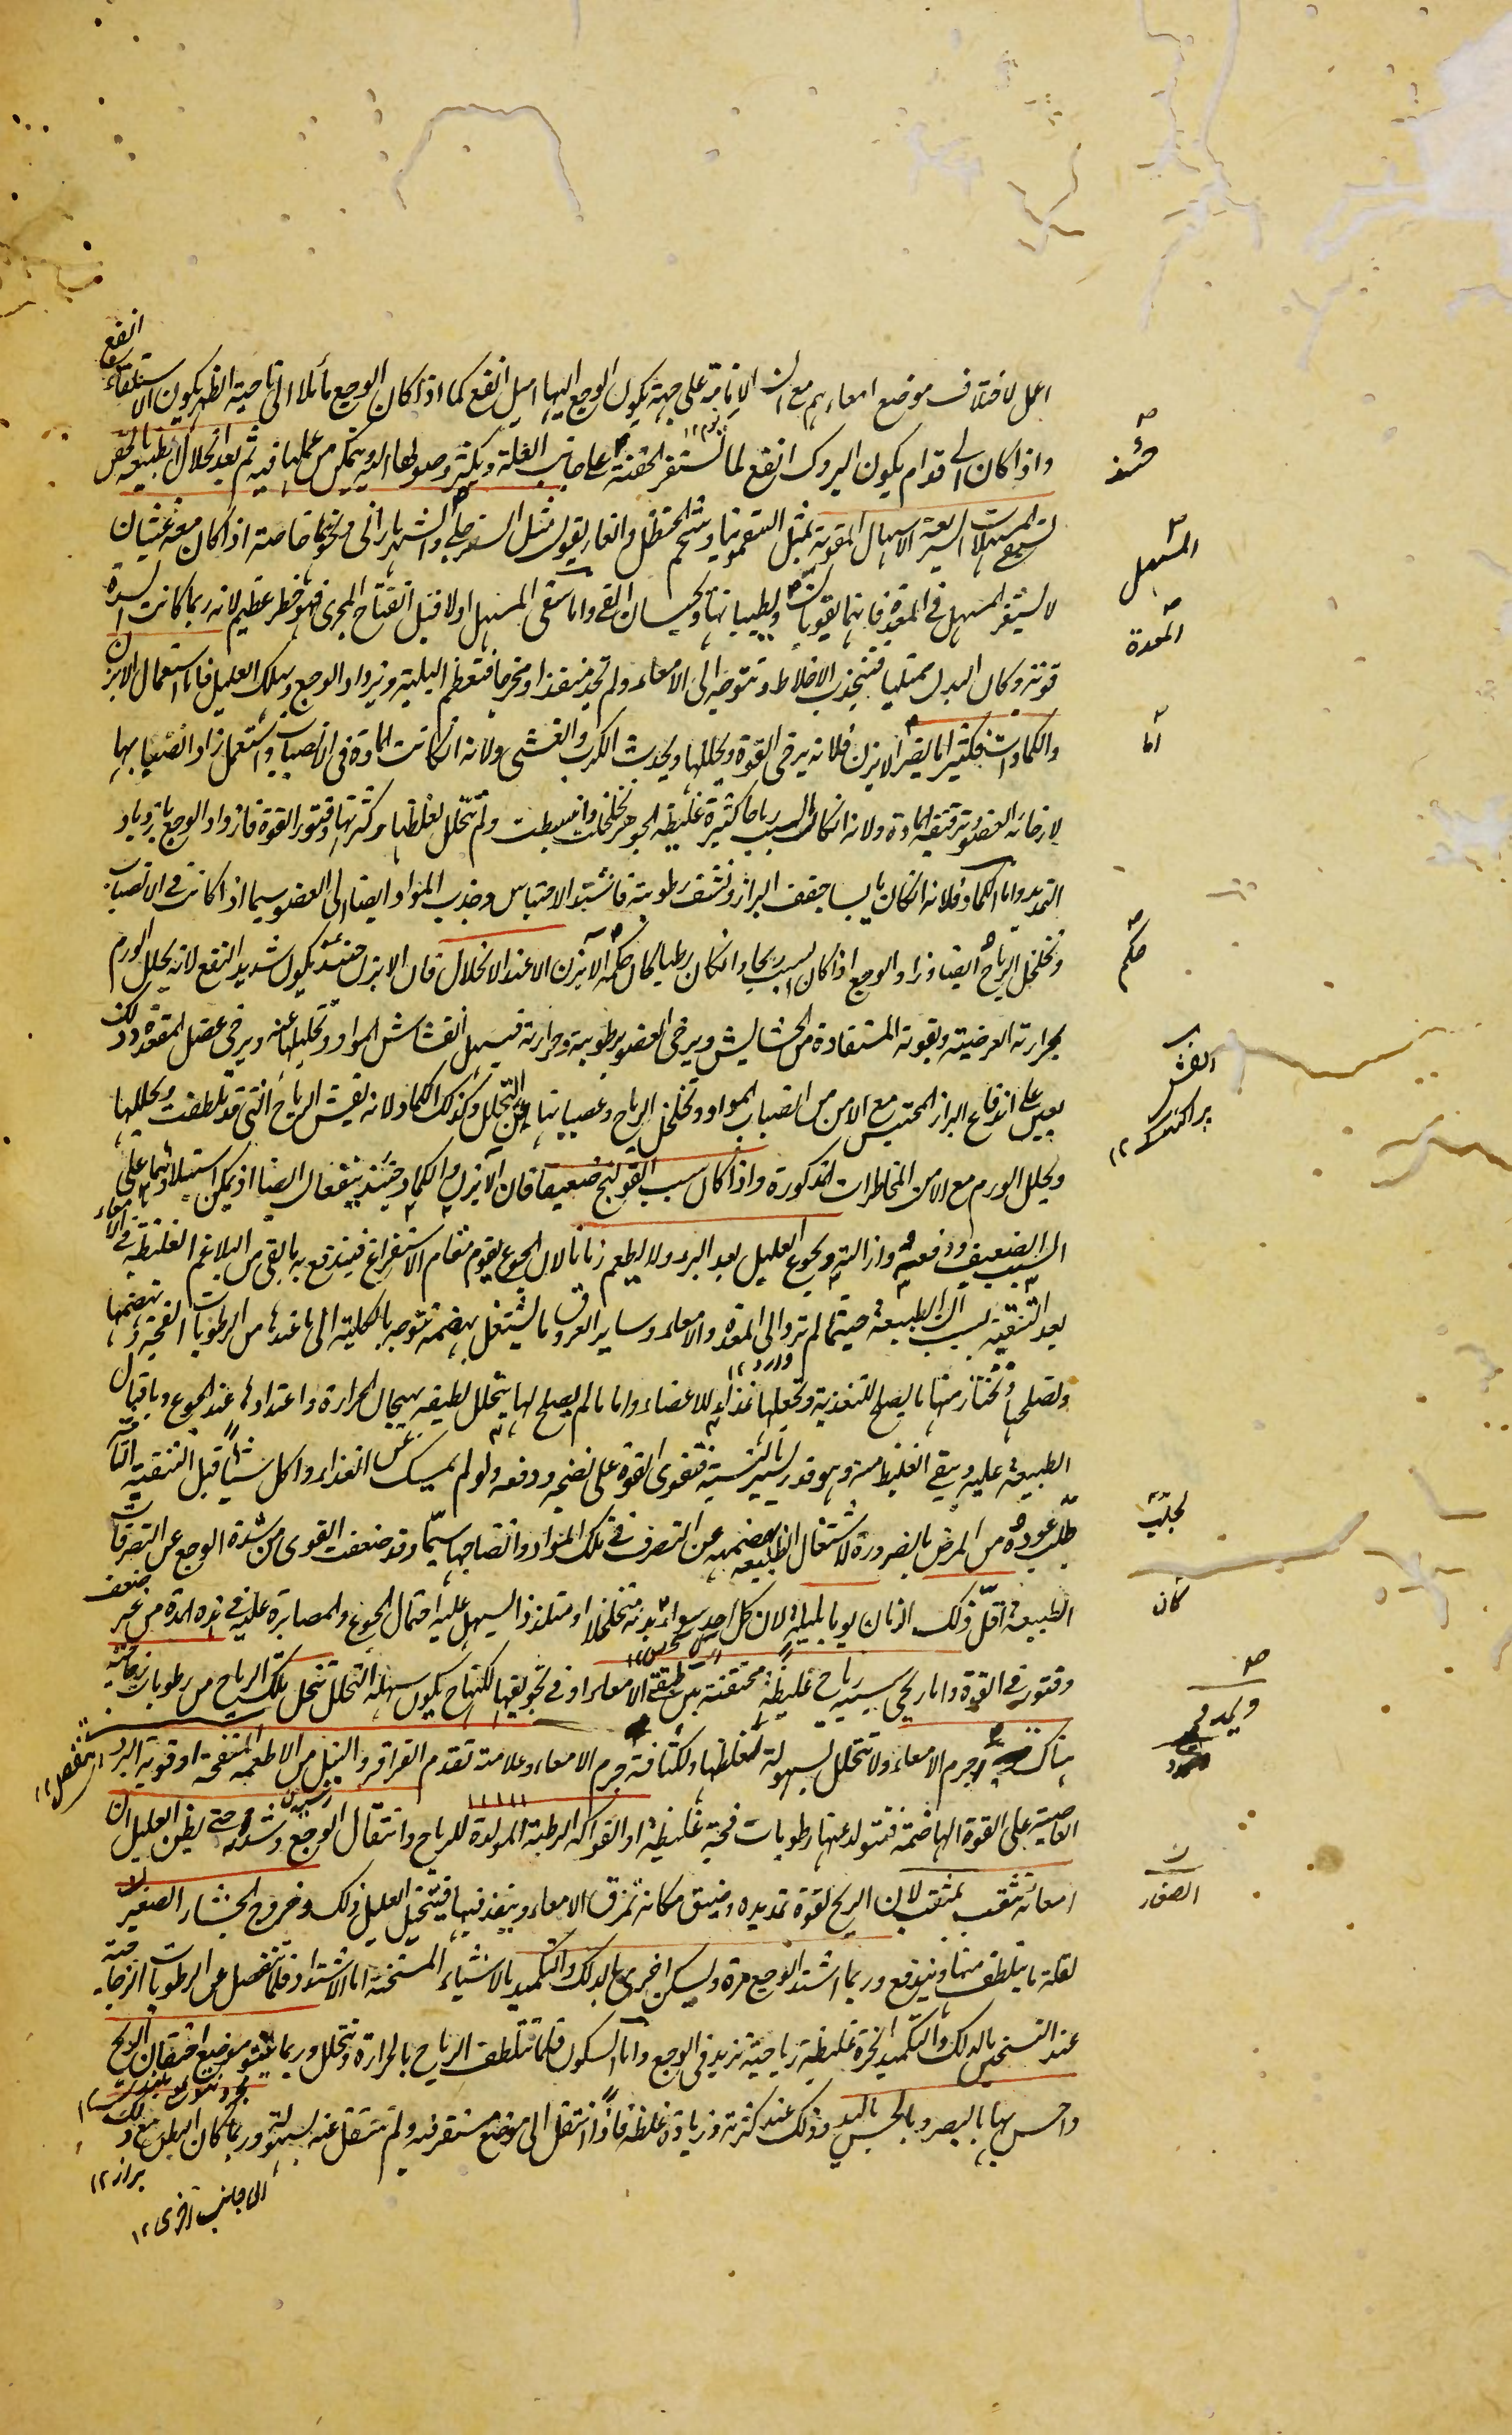 اعمل لاختلاف موضع امعاءهم مع ان الانامة على جهة يكون الوجع اليها اميل انفع كما اذا كان الوجع مائلا الى ناحية الظهر يكون الاستلقاء
انفع
واذا كان الى قدام يكون البروك انفع لما تستقر الحقنة على جانب العلة ويكثر وصولها اليه ويتمكن من عملها فيه ثم بعد انحلال الطبيعة بالحقن
تستعمل المسهلات السريعة الاسهال المقوية بمثل السقمونيا وشحم الحنظل والغاريقون مثل السفرجلى والشهرياران ونحوهما خاصة اذا كان معه غثيان
لا يستقر المسهل فى المعدة فانهما يقويان ويطيبانها ويحبسان القى واما سقى المسهل اولا قبل انفتاح المجرى فهو خطر عظيم لانه ربما كانت السدة
قوية وكان البدن ممتليا فتنجذب الاخلاط وتتوجه الى الامعاء ولم تجد منفذا ومخرجا فتعظم البلية ويزداد الوجع ويهلك العليل فاما استعمال الابزن
والكمادات فكثيرا ما يضر الابزن فلانه يرخى القوة ويحللها ويحدث الكرب والغشى ولانه ان كانت المادة فى الانصباب واستعمل زاد انصبابها
لارخائه العضو وترقيقه المادة ولانه ان كان السبب رياحا كثيرة غليظة الجوهر تخلخلت وانبسطت ولم تتحلل لغلظها وكثرتها وفتور القوة فازداد الوجع بازدياد
التمديد واما الكماد فلانه ان كان يابسا جفف البراز ونشف رطوبته فاشتد الاحتباس وجذب المواد ايضا الى العضو سيما اذا كانت فى الانصباب
وتخلخل الرياح ايضا وزاد الوجع اذا كان السبب ريحا وان كان رطبا كان حكمه حكم الابزن الا عند الانحلال فان الابزن حينئذ يكون شديد النفع لانه يحلل الورم
بحرارته العرضية وبقوته المستفادة من الحشايش ويرخى العضو برطوبته وحرارته فيسهل انفشاش المواد وتحللها عنه ويرخى عضل المقعدة وذلك
يعين على اندفاع البراز المحتبس مع الامن من انصباب المواد وتخلخل الرياح وعصيانها عن التحلل وكذلك الكماد لانه يفش الرياح التى قد تلطفت ويحللها
ويحلل الورم مع الامن المخاطرات المذكورة واذا كان سبب القولنج ضعيفا فان الابزن والكماد حينئذ ينفعان ايضا اذ يمكن استيلاؤهما على
السبب الضعيف ودفعه وازالته ويجوع العليل بعد البرء ولا يطعم زمانا لان الجوع يقوم مقام الاستفراغ فيندفع به ما بقى من البلاغم الغليظة فى
الامعاء
بعد التنقية بسبب ان الطبيعة حيثما لم ترد الى المعدة والامعاء وساير العروق ما تشتغل بهضمه تتوجه بالكلية الى ما عندها من الرطوبات الفجة تهضمها
وارد ١٢
وتصلحها وتختار منها ما يصلح للتغذية وتجعلها غذاء للاعضاء واما ما لم يصلح لها يتحلل لطيفه بهيجان الحرارة واعتدادها عند الجوع وباقبال
الطبيعة عليه ويبقى الغليظ منه وهو قدر يسير بالنسبة فتقوى القوة على نضجه ودفعه ولو لم يمسك عن الغذاء واكل شيئا قبل التنقية التامة
جلب عودة من المرض بالضرورة لاشتغال الطبيعة بهضمه عن التصرف فى تلك المواد وانضاجها سيما وقد ضعفت القوى من شدة الوجع عن التصرفات
الطبيعة اقل ذلك الزمان يوما بليلة لان كل احد سواء كان بدنه متخلخلا او متلززا يسهل عليه احتمال الجوع والمصابرة عليه فى هذه المدة من غير ضعف
وفتور فى القوة واما ريحى سببه رياح غليظة محتقنة بين طبقتى الامعاء او فى تجويفها لكنها تكون سهلة التحلل تنحل تلك الرياح من رطوبات زجاجية
هناك جرم الامعاء ولا تتحلل بسهولة لغلظها ولكثافة جرم الامعاء وعلامته تقدم القراقر والنيل من الاطعمة المنفخة او قوية البرد
العاصية على القوة الهاضمة فتتولد عنها رطوبات فجة غليظة او الفواكه الرطبة المولدة للرياح وانتقال الوجع وشدته حتى يظن العليل ان
امعائه تثقب بمثقب لان الريح لقوة تمديده وضيق مكانه تمزق الامعاء وينفذ فيها فيتخيل العليل ذلك وخروج الجشاء الصغير
لقلة ما يتلطف منها ويندفع وربما اشتد الوجع مرة ويسكن اخرى بالدلك والتكميد بالاشياء المسخنة اما الاشتداد فلما تنفصل عن الرطوبات الزجاجية
عند التسخين بالدلك والتكميد ابخرة غليظة رياحية تزيد فى الوجع واما السكون فلما تتلطف الرياح بالحرارة وتتحلل وربما نتأ موضع احتقان الريح
واحس بها بالبصر وبالجس باليد وذلك عند كثرته وزيادة غلظه فاذا انتقل الى موضع مستقر فيه ولم ينتقل عنه بسهولة وربما كان البطن مع ذلك
براز ١٢
الى جانب اخرى ١٢
حينئذ
المستعمل
المعدة
اما
حكم
انفش
پراگنده ١٢
لجلب
كان
الصغار